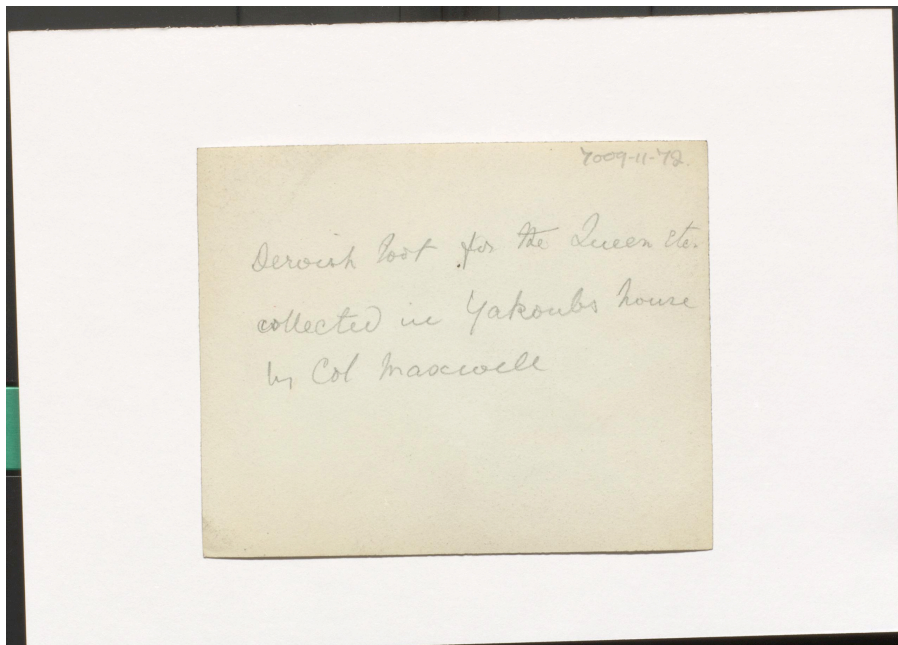 7009-11-72.
Dervish loot for the Queen etc.
collected in Yakoubs house
by Col Maxwell